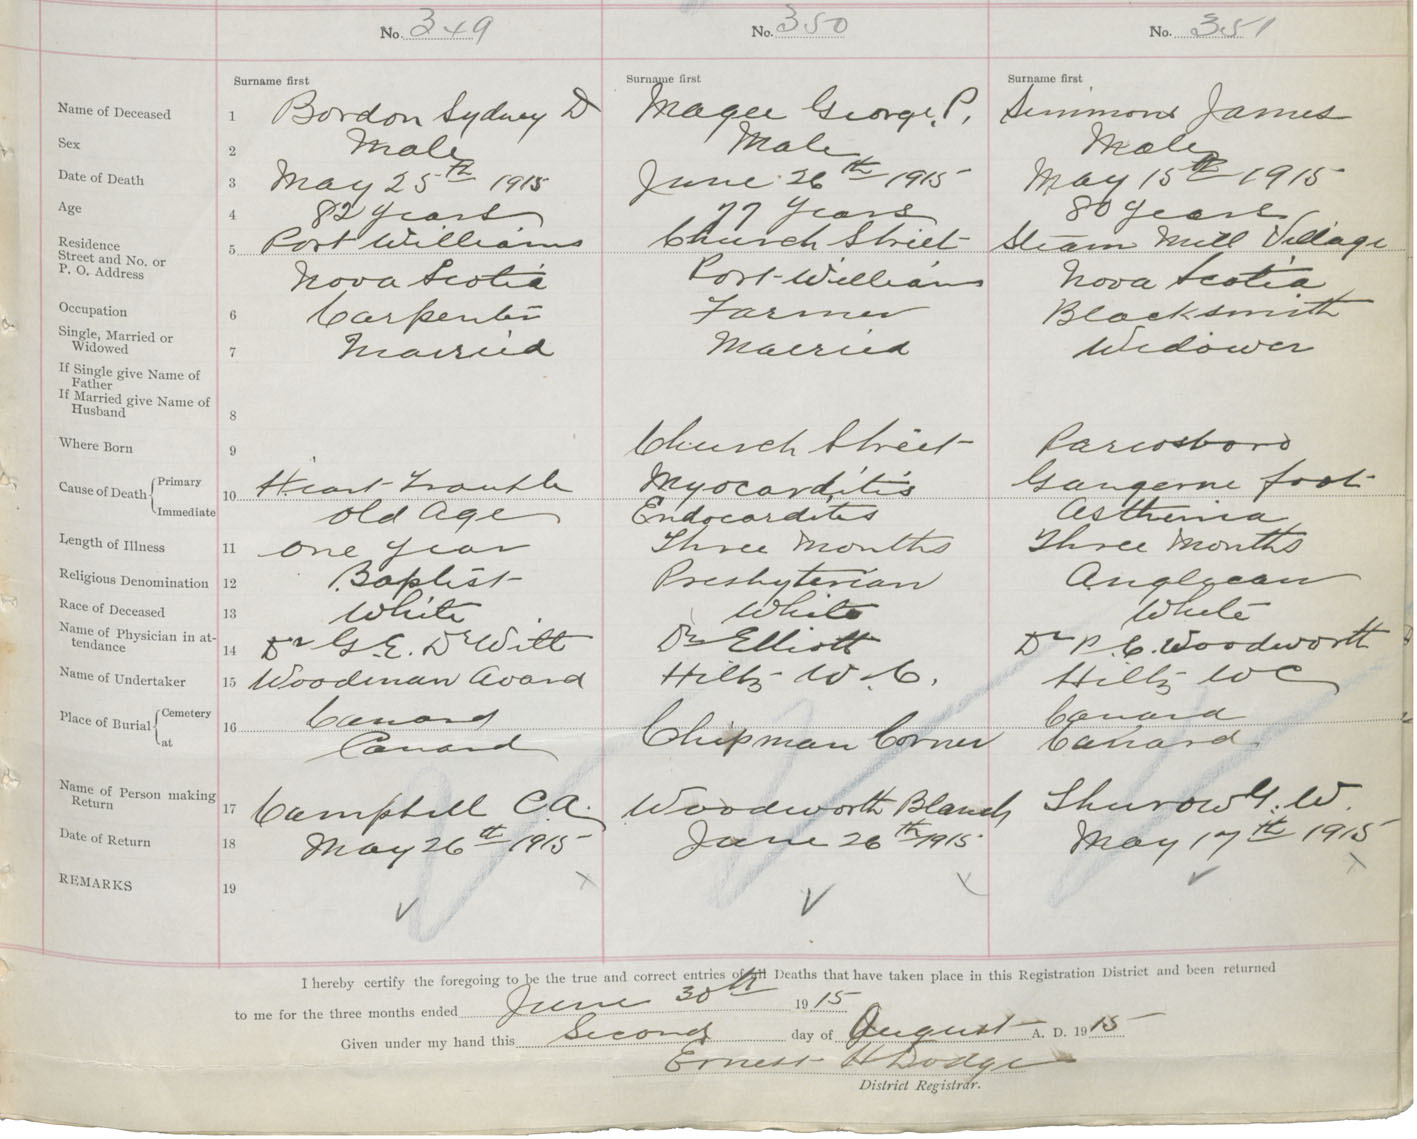 No. 349 No. 350 No. 351
Surname first Surname first Surname first
Name of Deceased 1 Bordon Sydney D Magee George. P. Simmons James
Sex 2 Male Male Male
Date of Death 3 May 25th 1915 June 26th 1915 May 15th 1915
Age 4 82 years 77 Years 80 years
Residence
Street and No. or
P. O. Address
5 Port Williams Church Street Steam Mill Village
Nova Scotia Port Williams Nova Scotia
Occupation 6 Carpenter Farmer Blacksmith
Single, Married or
Widowed 7 Married Married Widower
If Single give Name of
Father
If Married give Name of
Husband 8
Where Born 9 Church Street Parrsboro
Cause of Death { Primary
10 Heart Trouble Myocarditis Gangerne foot
Immediate old Age Endocarditis Asthenia
Length of Illness 11 one year Three Months Three Months
Religious Denomination 12 Baptist Presbyterian Anglycan
Race of Deceased 13 White White White
Name of Physician in at-
tendance 14 Dr G. E. DeWitt Dr Elliott Dr P. C. Woodworth
Name of Undertaker 15 Woodman Avard Hiltz W. C. Hiltz W C
Place of Burial { Cemetery
16 Canard Canard
at Canard Chipman Corner Canard
Name of Person making
Return 17 Campbell C. A. Woodworth Blanch G. W.
Date of Return 18 May 26th 1915 June 26th 1915 May 17th 1915
REMARKS 19
I hereby certify the foregoing to be the true and correct entries of all Deaths that have taken place in this Registration District and been returned
to me for the three months ended June 30th 1915
Given under my hand this Second day of August A. D. 1915
Ernest H Dodge
District Registrar.